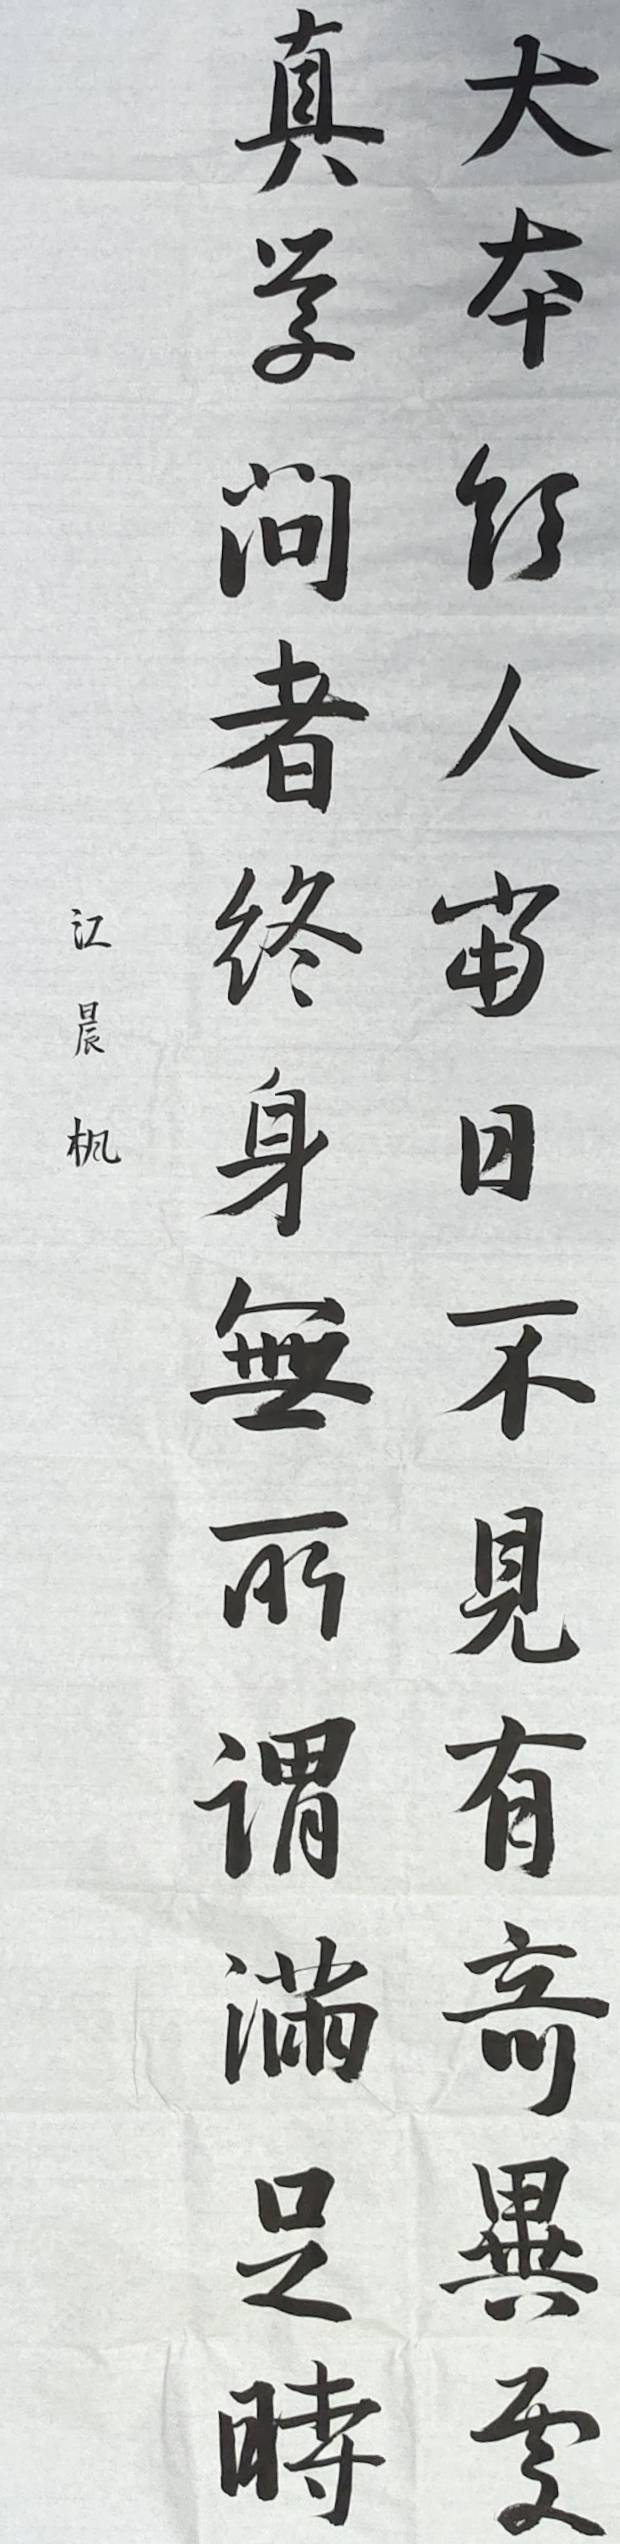 大本领人當日不見有奇異處
真学问者終身無所謂滿足時
江晨枫